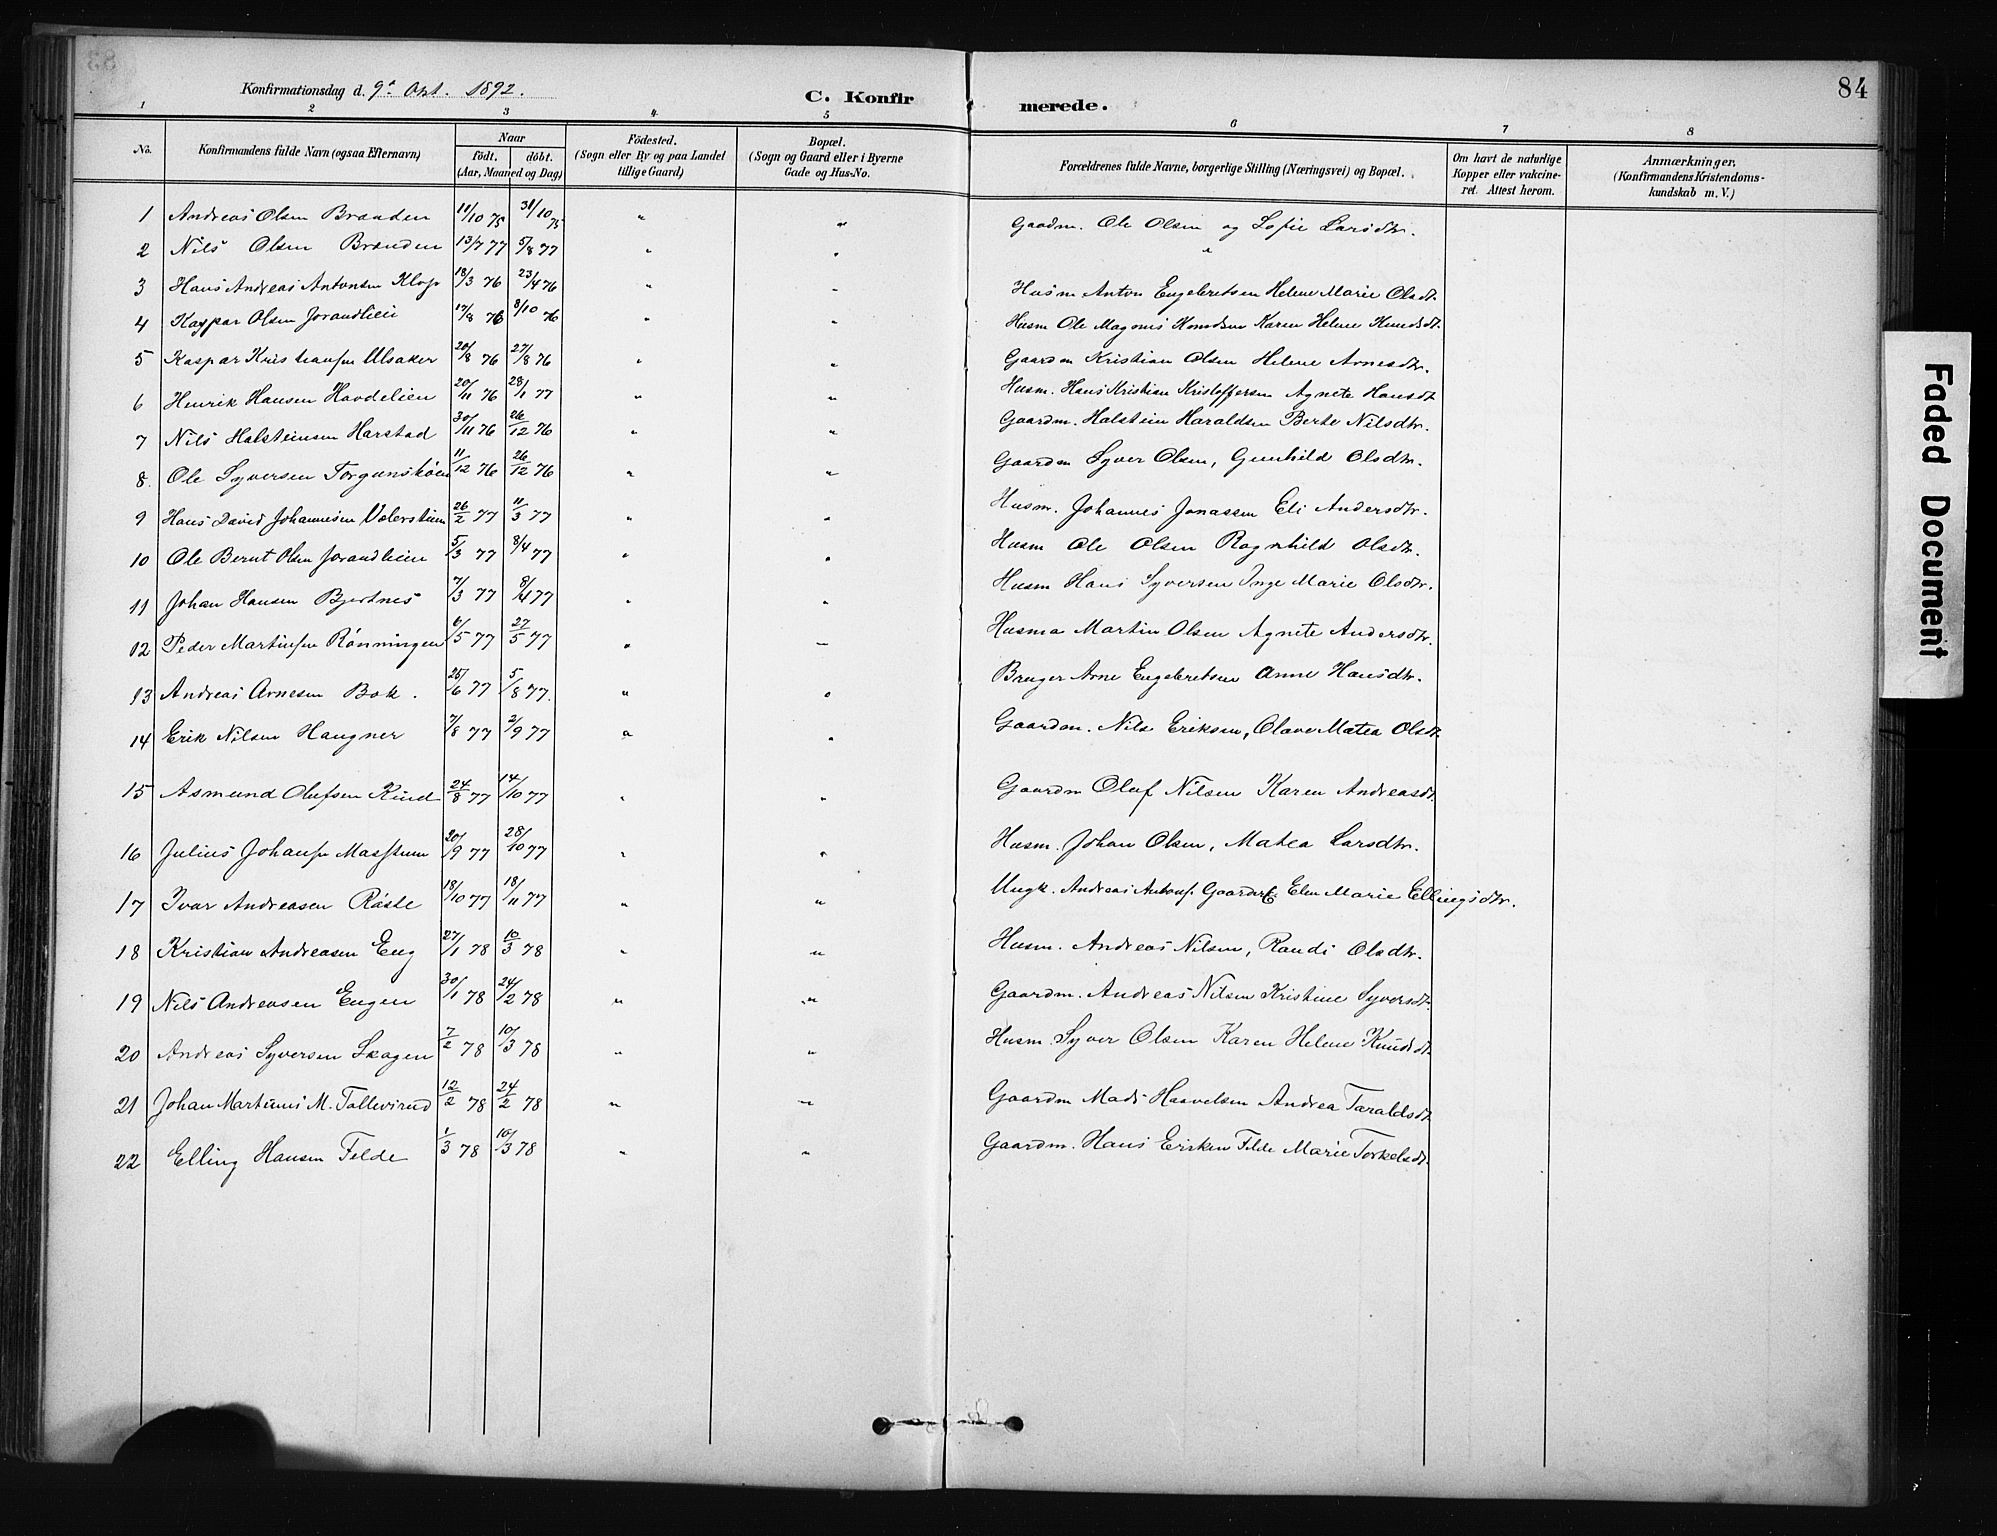 84
Konfirmationsdag d. 9de Okt. 1892.
C. Konfirmerede.
1 2 3 4 5 6 7 8
No.
Konfirmandens fulde Navn (ogsaa Efternavn)
Naar
födt. döbt.
(Aar, Maaned og Dag)
Födested.
(Sogn eller By og paa Landet
tillige Gaard)
Bopæl.
(Sogn og Gaard eller i Byerne
Gade og Hus-No.
Forældrenes fulde Navne, borgerlige Stilling (Næringsvei) og Bopæl.
Om havt de naturlige
Kopper eller vakcine-
ret. Attest herom.
Anmærkninger.
(Konfirmandens Kristendoms-
kundskab m. V.)
1 Andreas Olsen Branden 11/10 75 31/10 75 " " Gaardm. Ole Olsen og Sofie Larsdtr.
2 Nils Olsen Branden 13/7 77 5/8 77 " " "
3 Hans Andreas Antonsen Klop 18/3 76 23/4 76 " " Husm Anton Engebretsen Helene Marie Olsdt.
4 Kaspar Olsen Jorandlien 17/8 76 8/10 76 " " Husm Ole Magnus Karen Helene Knudsdt.
5 Kaspar Kristiansen Ulsaker 20/8 76 27/8 76 " " Gaardm Kristian Olsen Helene Arnesdtr.
6 Henrik Hansen Hovdelien 20/11 76 28/1 77 " " Husm. Hans Kristian Kristoffersen Agnete Hansdt.
7 Nils Halsteinsen Harstad 30/11 76 26/12 76 " " Gaardm. Halstein Haraldsen Berte Nilsdtr.
8. Ole Syversen 11/12 76 26/12 76 " " Gaardm Syver Olsen, Gunhild Olsdtr.
9 Hans David Johannesen 26/2 77 11/3 77 " " Husm. Johannes Jonassen Eli Andersdtr.
10 Ole Bernt Olsen Jorandlien 5/3 77 8/4 77 " " Husm Ole Olsen Ragnhild Olsdtr.
11 Johan Hansen Bjertnes 7/3 77 8/4 77 " " Husm Hans Syversen Inge Marie Olsdtr.
12 Peder Martinsen Rønningen 6/5 77 27/5 77 " " Husma Martin Olsen Agnete Andersdtr.
13 Andreas Arnesen Bak. 25/6 77 5/8 77. " " Bruger Arne Engebretsen Anne Hansdtr.
14 Erik Nilsen Haugner 7/8 77 2/9 77 " " Gaardm. Nils Eriksen, Olave Matea Olsdt.
15 Asmund Olufsen Rud 24/8 77 14/10 77 " " Gaardm Oluf Nilsen Karen Andreasdt.
16 Julius Johansen 20/9 77 28/10 77 " " Husm. Johan Olsen, Matea Larsdtr.
17 Ivar Andreasen Røste 18/10 77 18/11 77 " " Ungk. Andreas Antons. Elen Marie Ellingsdtr.
18 Kristian Andreasen Eng 27/1 78 10/3 78 " " Husm. Andreas Nilsen, Randi Olsdtr.
19 Nils Andreasen Engen 30/1 78 24/2 78 " " Gaardm. Andreas Nilsen Kristine Syversdt.
20 Andreas Syversen Skagen 7/2 78 10/3 78 " " Husm. Syver Olsen Karen Helene Knudsdt.
21 Johan Martinus M. Tollevsrud 12/2 78 24/2 78 " " Gaardm Mads Haavelsen Andrea Taraldsdt.
22 Elling Hansen Felde 1/3 78 10/3 78 " " Gaardm. Hans Eriksen Felde Marie Torkelsdt.
Faded Document